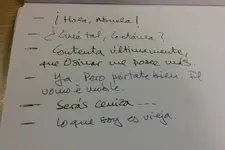 — ¡Hola, Abuela!
— ¿Qué tal, Cectánea?
— Contenta últimamente,
que Osinar me posee más.
— Ya. Pero pórtate bien. Il
uomo è mobile.
— Serás ceniza...
— Lo que soy es vieja.